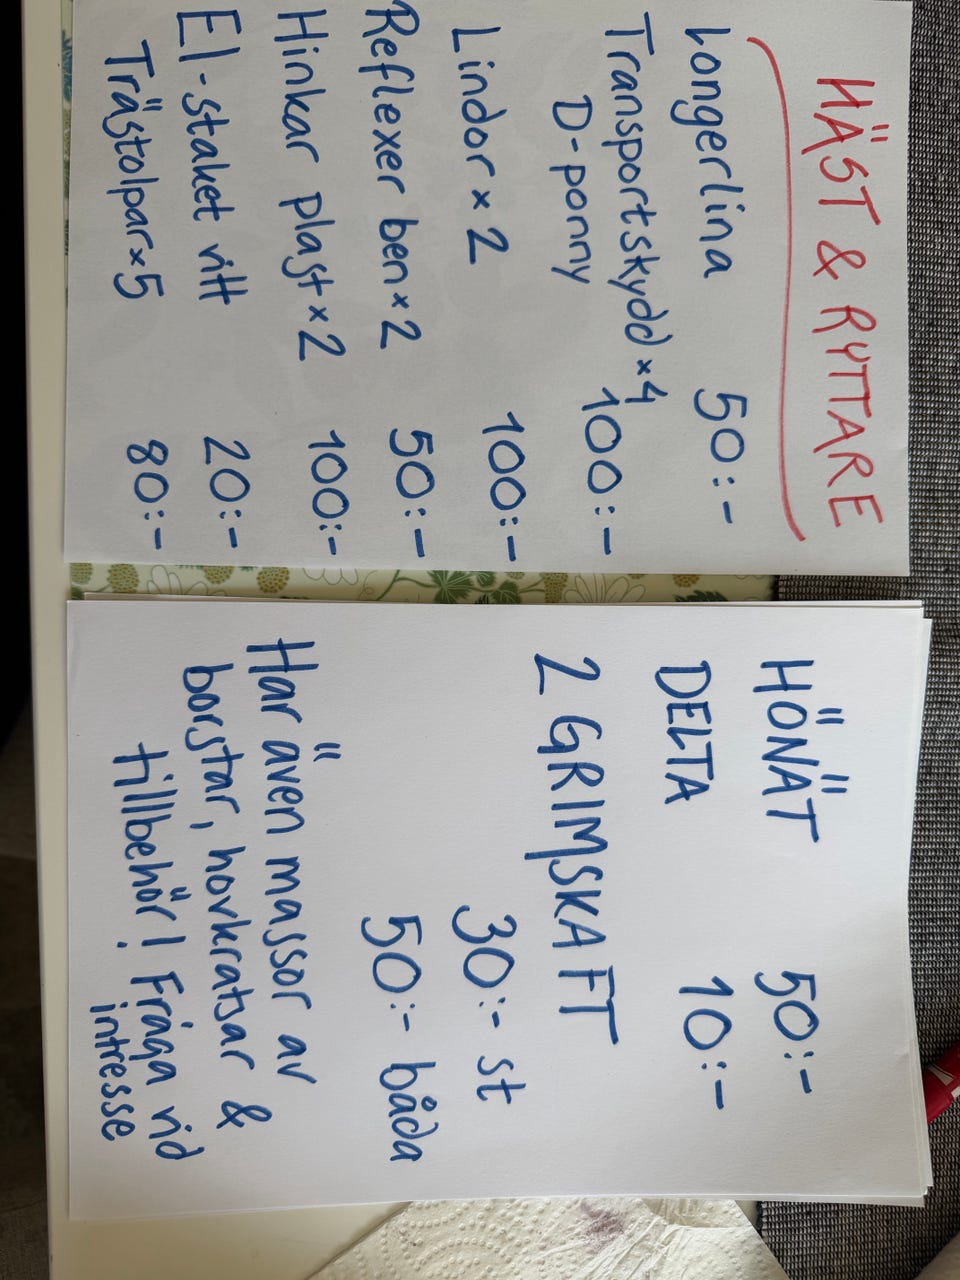 HÄST & RYTTARE
Longerlina 50:-
Transportskydd x 4
D-ponny 100:-
Lindor x 2 100:-
Reflexer ben x 2 50:-
Hinkar plast x 2 100:-
El-staket vitt 20:-
Trästolpar x 5 80:-
HÖNÄT 50:-
DELTA 10:-
2 GRIMSKAFT
30:- st
50:- båda
Har även massor av
borstar, hovkratsar &
tillbehör! Fråga vid
intresse